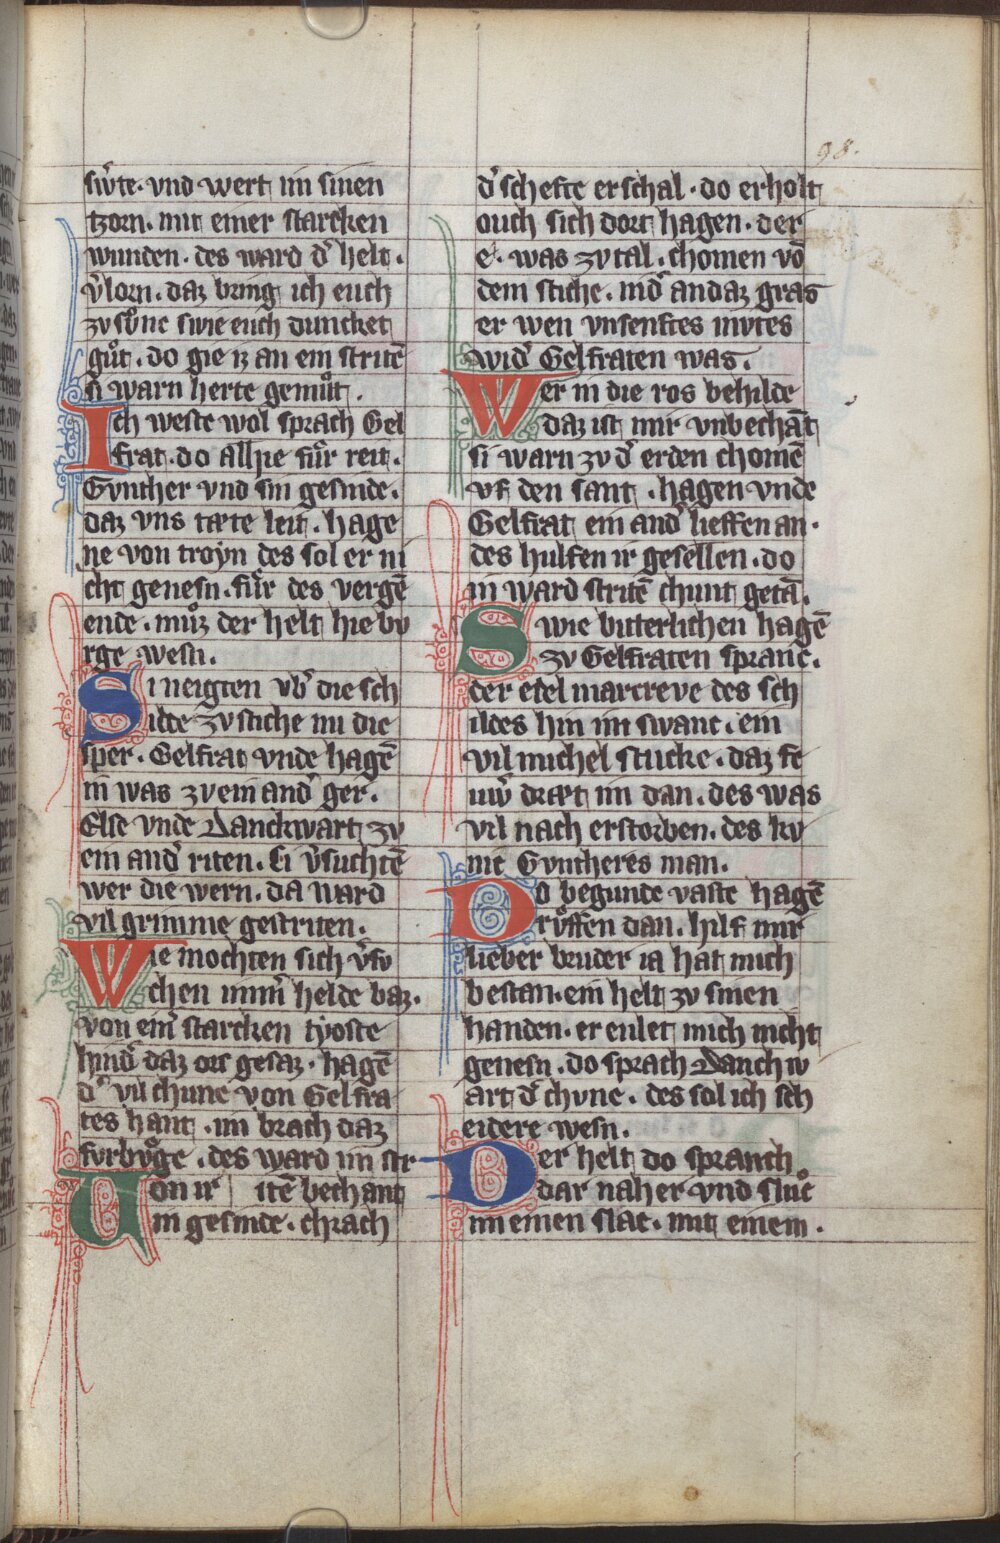 98.
sẘte. vnd wert im sinen
tzorn. mit einer starcken
wunden. des ward d͛ helt.
v͛lorn. daz bring ich euch
zv sv̊ne swie euch duncket
gůt. do gie iz an ein stritē
si warn herte gemůt.
Ich weste wol sprach Gel
frat. do allhie fůr reit.
Gvnther vnd sin gesinde.
daz vns tæte leit. hage
ne von troyn des sol er ni
cht genesn. fůr des vergē
ende. můz der helt hie bv
rge wesn.
Si neigten vb͛ die sch
ilde zv stiche nu die
sper. Gelfrat vnde hagē
in was zv ein and͛ ger.
Else vnde Danckwart zv
ein and͛ riten. si v͛suchtē
wer die wern. da ward
vil grimme gestriten.
Wie mochten sich v͛sv
chen imm͛ helde baz.
von ein͛ starcken tyoste
hind͛ daz ors gesaz. hagē
d͛ vil chune von Gelfra
tes hant. im brach daz
fvrbv̊ge. des ward im str
Von ir itē bechant
in gesinde. chrach
d͛ schefte erschal. do erholt
ouch sich dort hagen. der
e. was zv tal. chomen vō
dem stiche. nid͛ an daz gras
er wen vnsenftes mvtes
wid͛ Gelfraten was.
Wer in die ros behilde
daz ist mir vnbechāt
si warn zv d͛ erden chomē
vf den sant. hagen vnde
Gelfrat ein and͛ lieffen an.
des hulfen ir gesellen. do
in ward stritē chunt getā.
Swie bitterlichen hagē
zv Gelfraten spranc.
der etel marcreve des sch
ildes hin im swanc. ein
vil michel stucke. daz fe
uẘ dræt im dan. des was
vil nach erstorben. des kv
nic Gvntheres man.
Do begunde vaste hagē
růffen dan. hilf mir
lieber bruder ia hat mich
bestan. ein helt zv sinen
handen. er enlet mich nicht
genesn. do sprach Danch w
art d͛ chvne. des sol ich sch
eidere wesn.
Der helt do spranch
dar naher vnd slůc
im einen slac. mit einem.